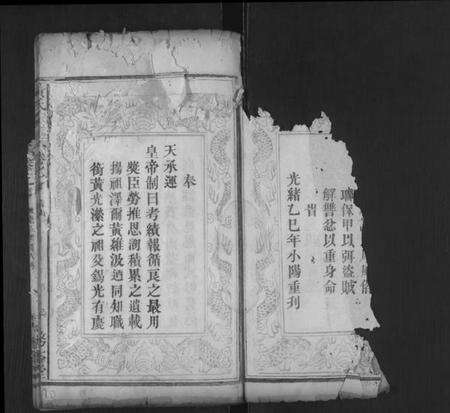 聯保甲以弭盜賊
解讐忿以重身命
光緒乙巳年小陽重刋
奉
天承運
皇帝制曰考績報循良之最用
奬臣勞推恩溯積累之遺載
揚祖澤爾黃維汲廼同知職
銜黃光濴之祖父錫光有慶